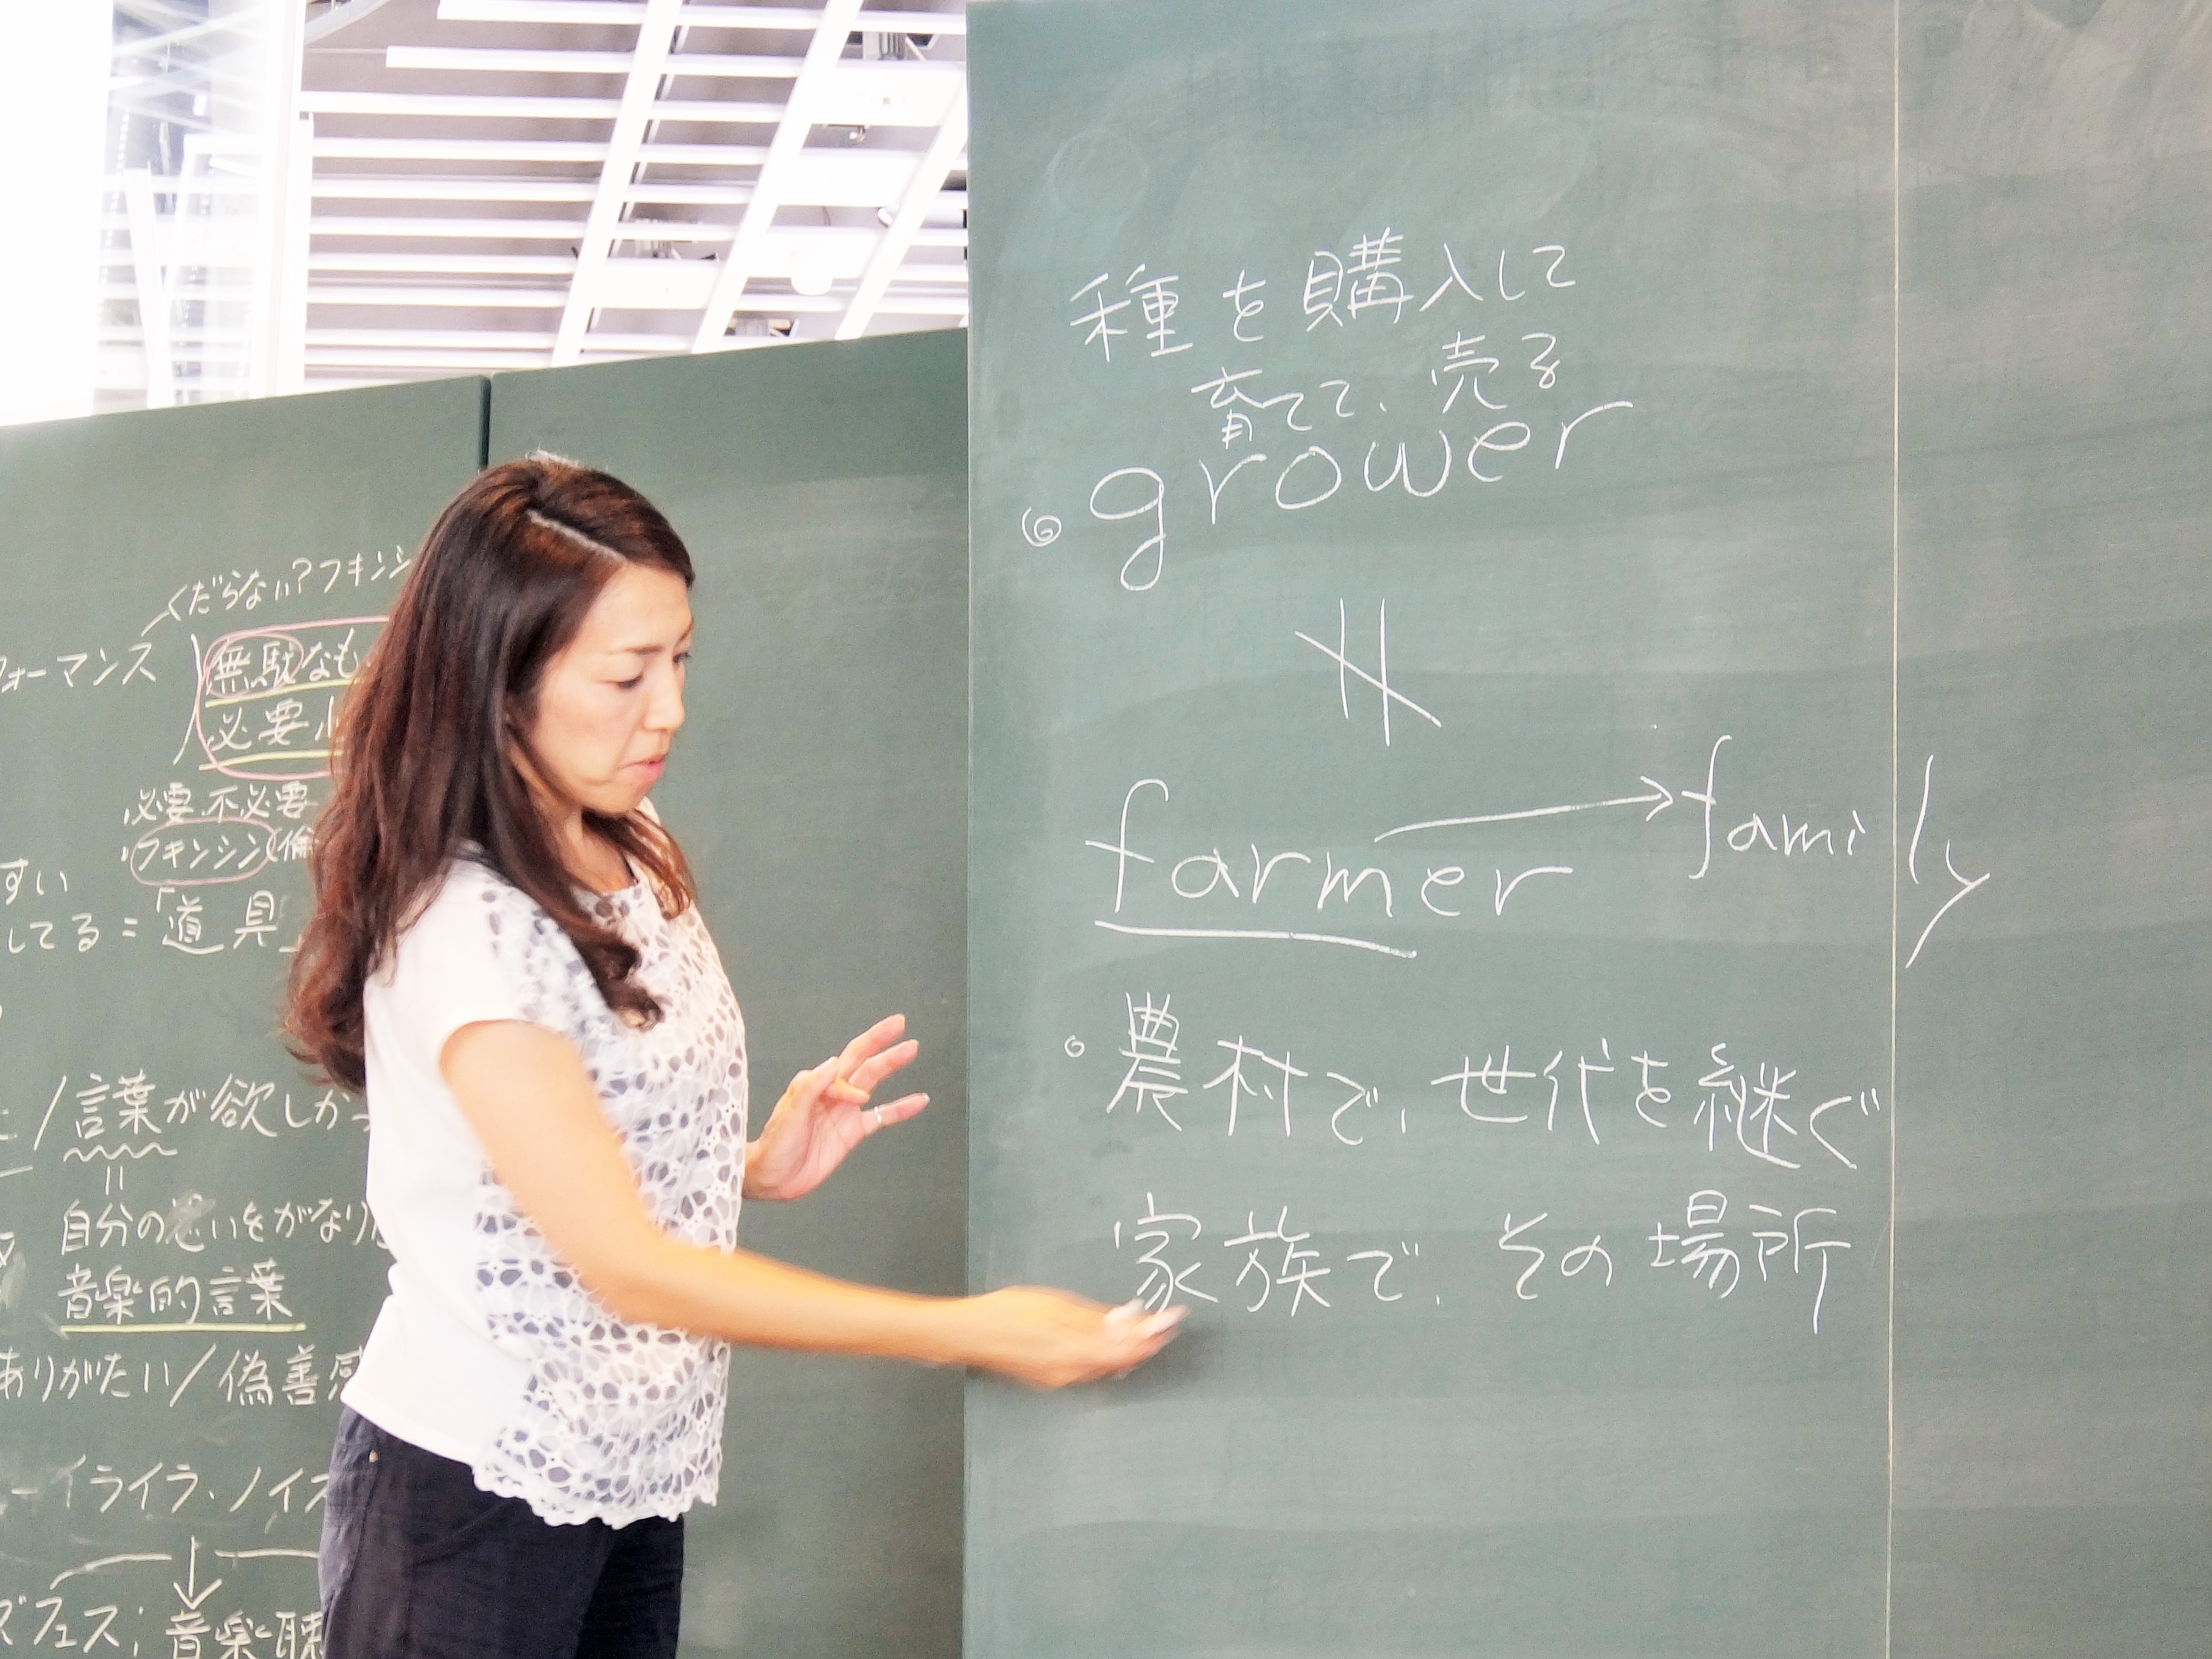 くだらない?フキンシ
フォーマンス
無駄なも
必要
必要不必要
フキンシン
すい
してる=「道具」
/言葉が欲しかっ
自分の思いをがなり
音楽的言葉
ありがたい/偽善感
イライラ、ノイズ
ズフェス;音楽聴
種を購入して
育てて、売る
grower
farmer → family
農村で、世代を継ぐ
家族で、その場所